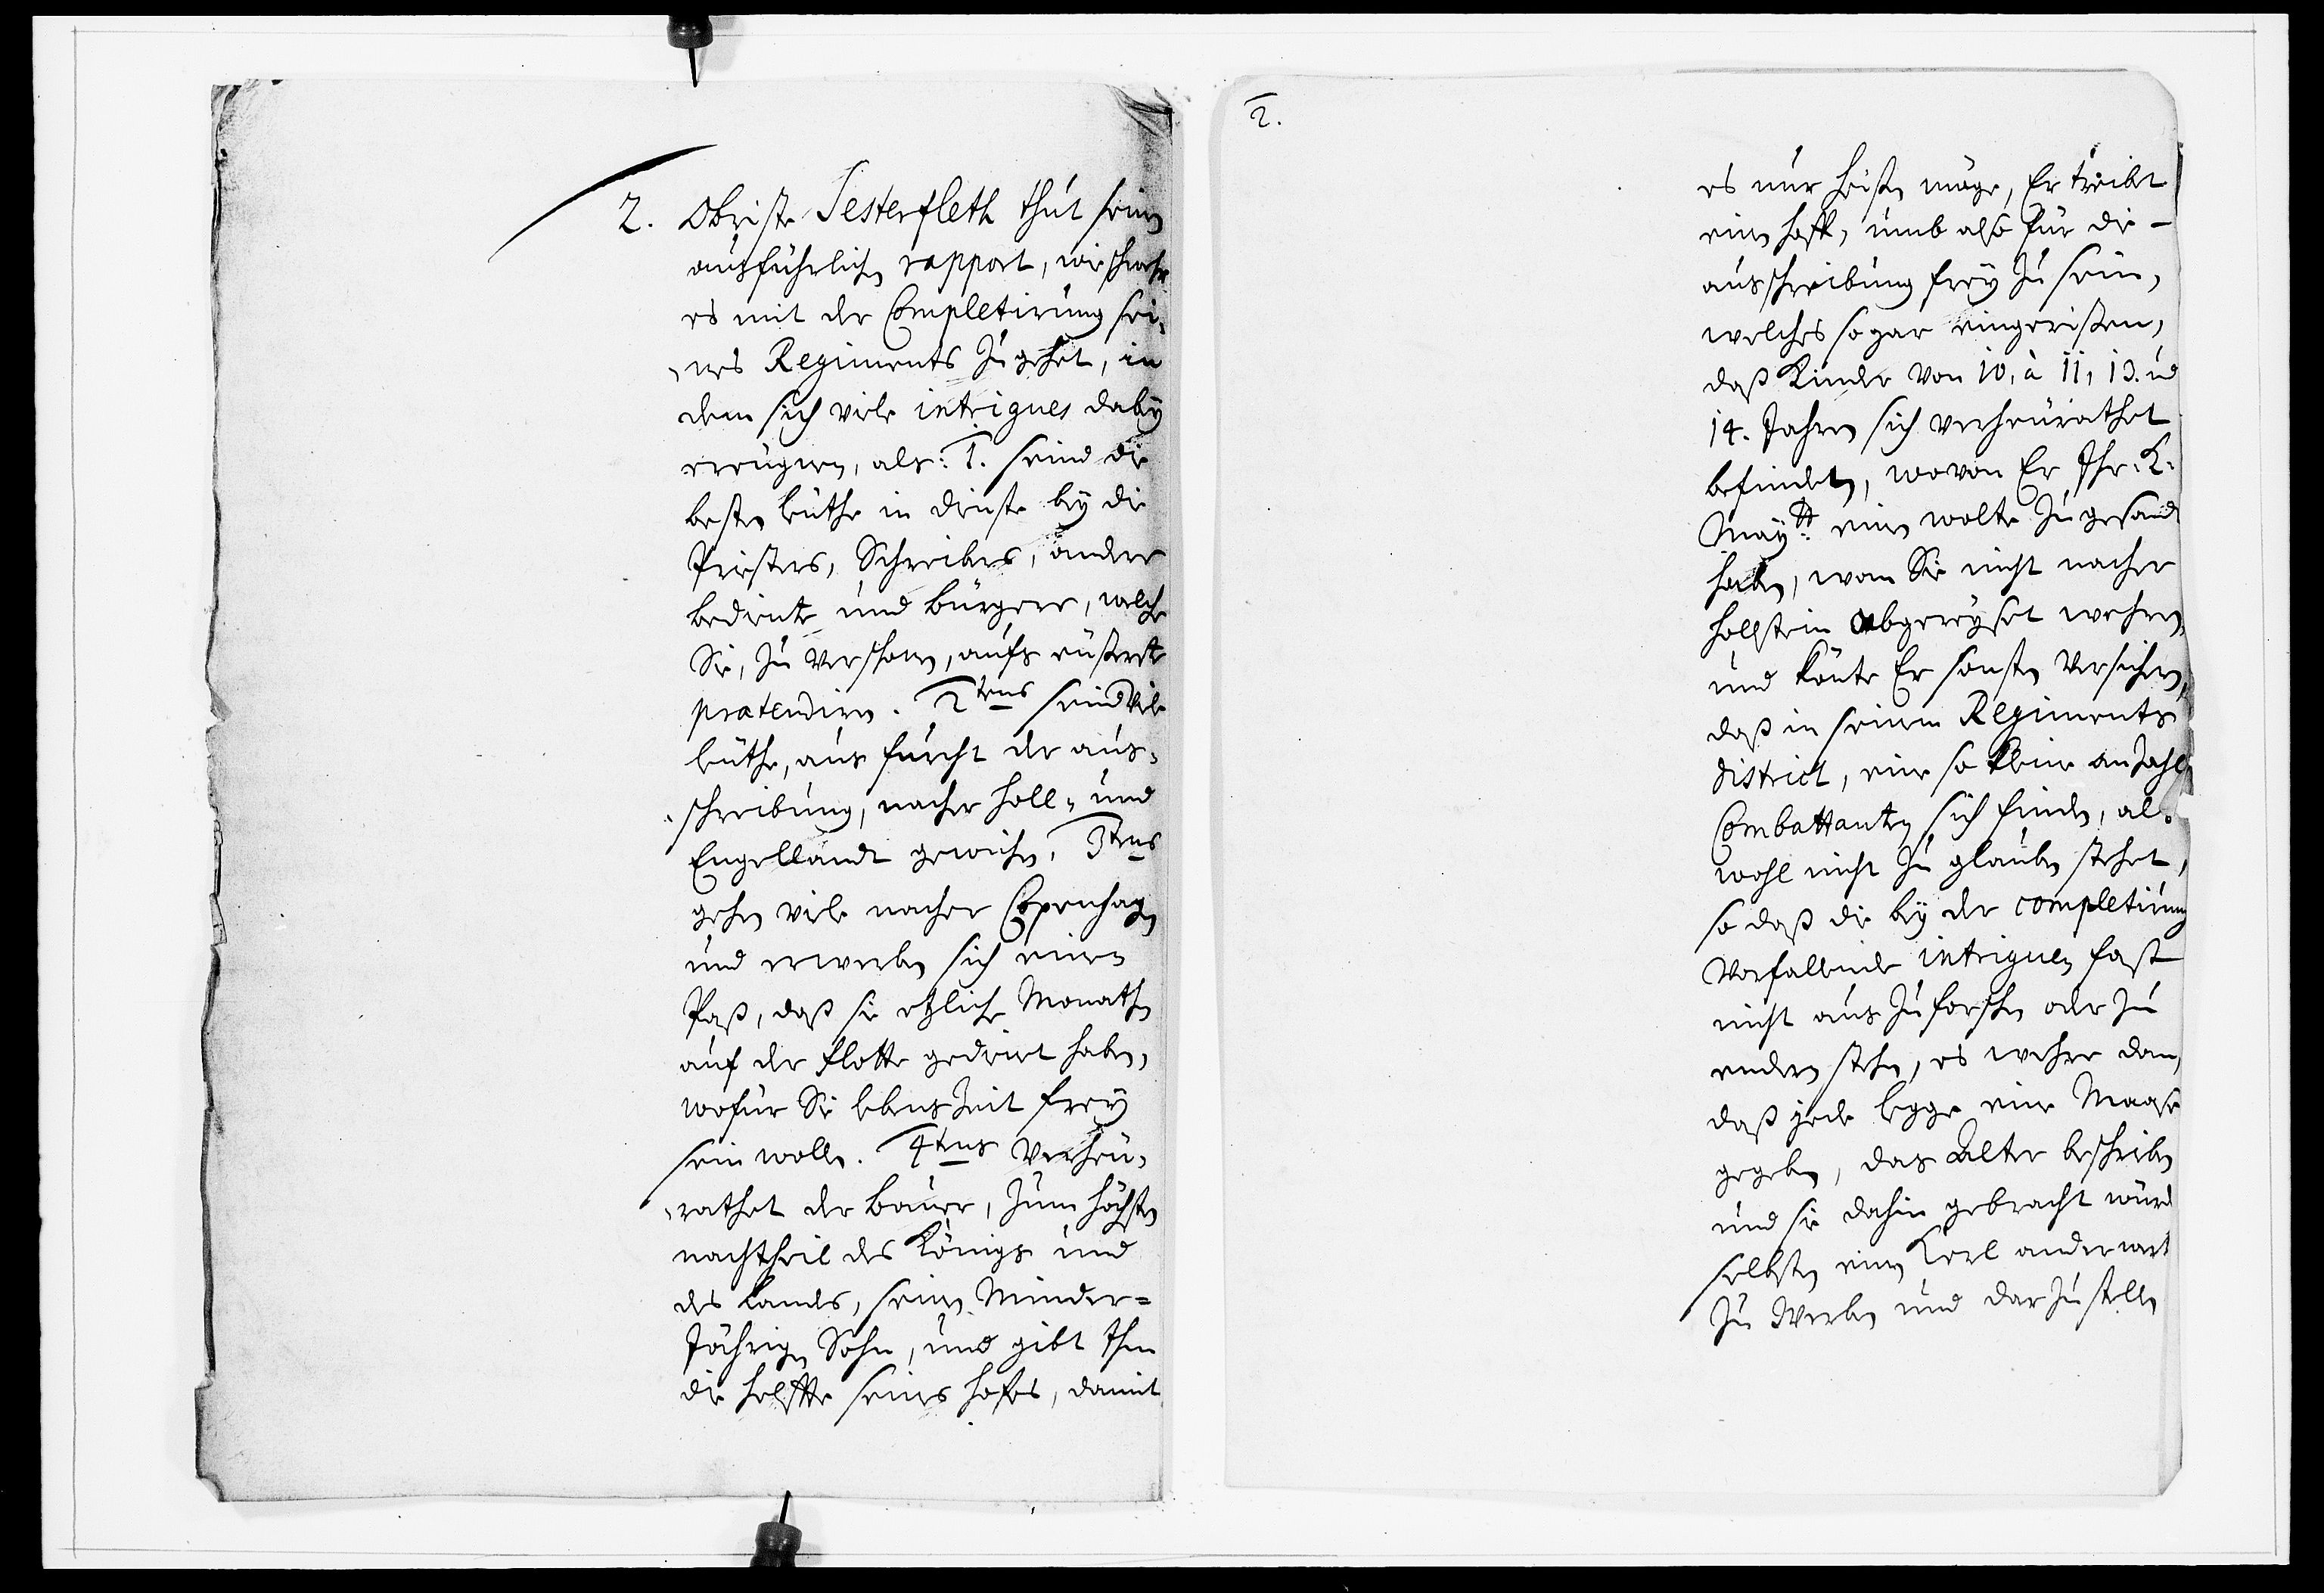 2. Obriste Jesterfleth thut seinen
ausführlichen rapport, wie schwehr
es mit der Completirung sei-
nes Regiments zugehet, in
dem sich viele intrigues dabey
ereugnen, als: 1. seind die
besten leuthe in dienste bey die
Priesters, Schreibers, andere
bediente und bürgere, welche
Sie, zu verschonen, aufs eüßerste
prætendiren. 2tens seind viele
leuthe, aus furcht der aus-
schreibung, nacher Holl- und
Engellandt gewichen, 3tens
gehen viele nacher Copenhagen
und erwerben sich einen
Paß, daß sie etzliche Monathen
auf der flotte gedient haben,
wofür Sie lebens Zeit frey
sein wollen. 4tens verheü-
rathet der bauer, zum höchsten
nachtheil des Königs und
des Landes, seinen Minder-
Jährigen Sohn, und gibt Ihm
die helffte seines hofes, damit
2.
es nur heißen möge, Er treibet
einen hoff, umb also für die
ausschreibung frey zu sein,
welches so gar eingerißen,
daß Kinder von 10, à 11, 13. ud
14. Jahren sich verheürathet
befinden, wovon Er Ihr. K.
Maytt: einen wolte zugesandt
haben, wan Sie nicht nacher
Hollstein abgereyset wehren,
und könte Er sonsten versichern,
daß in seinem Regiments
district, eine so kleine anzahl
Combattanten sich finde, als
wohl nicht zu glauben stehet,
so daß die bey der completirung
vorfallende intriguen fast
nicht aus zu forschen oder zu
endern stehen, es wehre dan,
daß jede legge eine Maase
gegeben, das Alter beschrieben
und sie dahin gebracht würd
selbsten einen Kerl anderwert
zu Werben und darzustellen